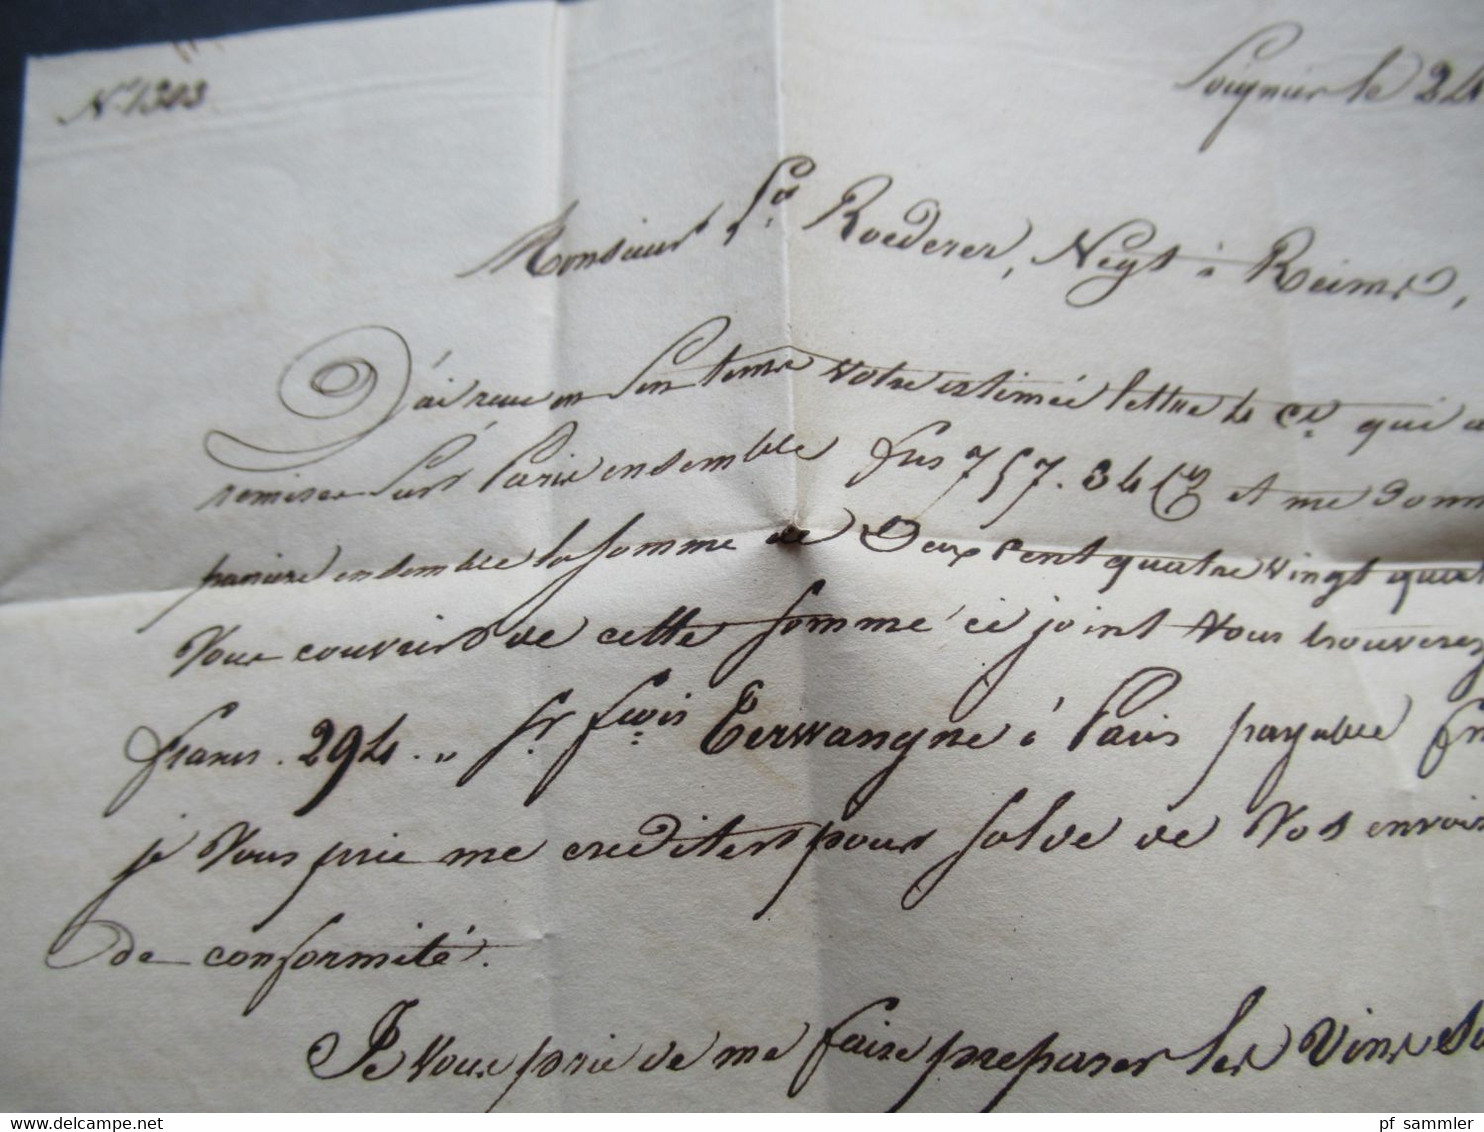 N° 1303
Soignies le 24
Monsieur Ls Roederer, Negt à Reims,
J'ai reçu en son tems votre estimée lettre 4 ct. qui
remises sur Paris ensemble frs 757.34 cs et me donn
paniers ensemble la somme de Deux cent quatre vingt quat
Vous couvrir de cette somme ci joint Vous trouverez
francs. 294. „ sr fçois Terwangne à Paris payable fin
je Vous prie me crediter pour solde de Vos envois
de conformité.
Je vous prie de me faire preparer les Vins
pf_sammler